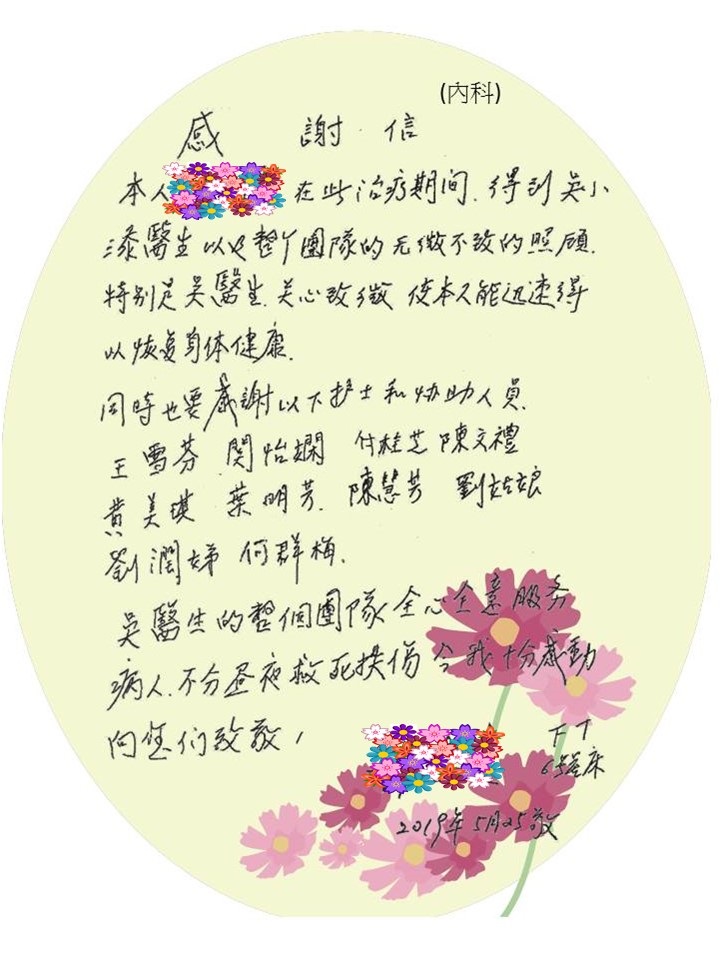 (內科)
感 謝 信
本人 在此治疗期间, 得到吳小
漆醫生以及整个團隊的无微不致的照顾.
特别是吳醫生关心致微 使本人能迅速得
以恢复身体健康.
同時也要感謝以下护士和协助人員.
王雪芬 関怡嫻 付桂芝 陳文禮
黄美琪 葉明芳. 陳慧芳 劉姑娘
劉潤娣 何群梅.
吳醫生的整個團隊全心全意服务
病人.不分昼夜救死扶伤 令我十分感動
向您们致敬,
F7
6号床
2019年5月25敬